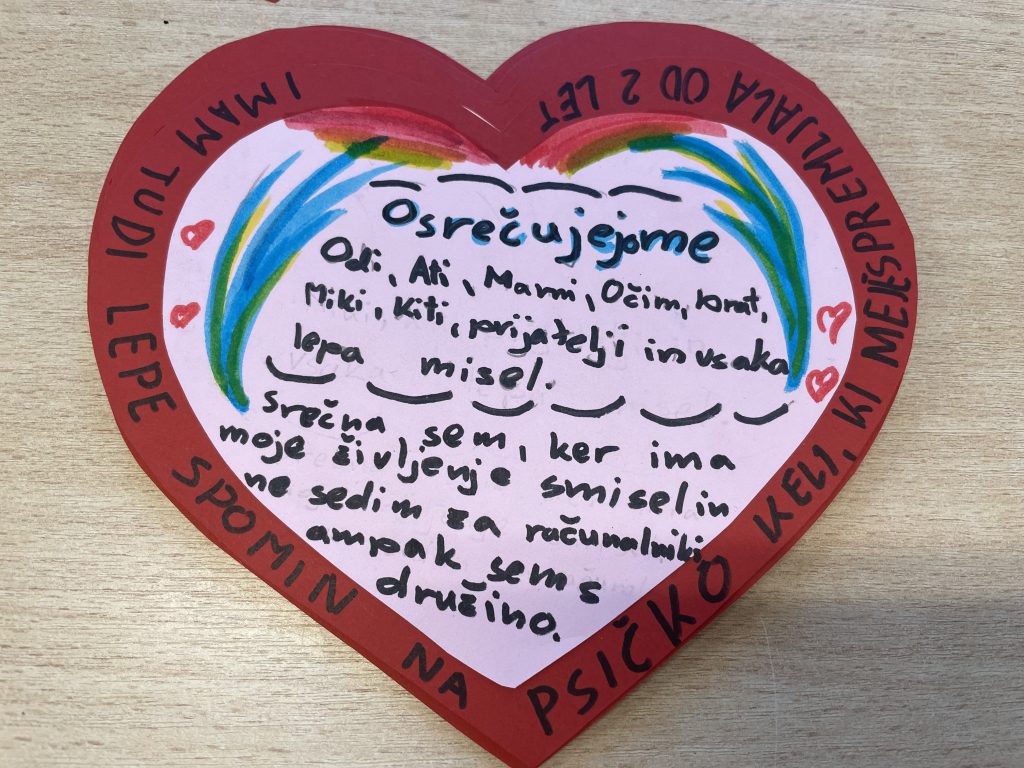 Osrečujejome
Odi, Ati, Mami, Očim, brat,
Miki, Kiti, prijatelji in vsaka
lepa misel.
Srečna sem, ker ima
moje življenje smisel in
ne sedim za računalniki,
ampak sem s
družino.
IMAM TUDI LEPE SPOMIN NA PSIČKO KELI, KI MEJESPREMLJALA OD 2 LET